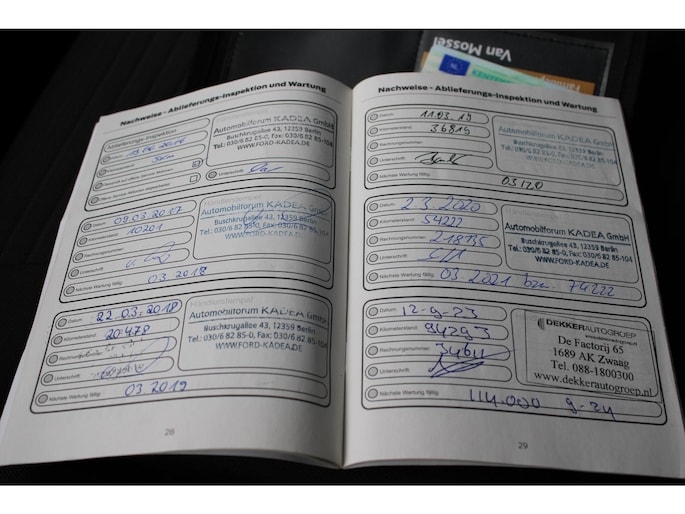 Van Mossel
Nachweise - Ablieferungs-Inspektion und Wartung
Ablieferungs-Inspektion
Datum
Unterschrift
Automobilforum KADEA GmbH
Buschkrugallee 43, 12359 Berlin
Tel.: 030/6 82 85-0, Fax: 030/6 82 85-104
WWW.FORD-KADEA.DE
Händlerstempel
Datum 09.03.2017
Kilometerstand 10201
Unterschrift
Nächste Wartung fällig 03.2018
Automobilforum KADEA GmbH
Buschkrugallee 43, 12359 Berlin
Tel.: 030/6 82 85-0, Fax: 030/6 82 85-104
WWW.FORD-KADEA.DE
Händlerstempel
Datum 22.03.2018
Kilometerstand 20478
Rechnungsnummer
Unterschrift
Nächste Wartung fällig 03.2019
Automobilforum KADEA GmbH
Buschkrugallee 43, 12359 Berlin
Tel.: 030/6 82 85-0, Fax: 030/6 82 85-104
WWW.FORD-KADEA.DE
28
Nachweise - Ablieferungs-Inspektion und Wartung
Datum 11.03.19
Kilometerstand 36819
Rechnungsnummer
Unterschrift
Nächste Wartung fällig 03/20
Automobilforum KADEA GmbH
Buschkrugallee 43, 12359 Berlin
Tel.: 030/6 82 85-0, Fax: 030/6 82 85-104
WWW.FORD-KADEA.DE
Datum 2.3.2020
Kilometerstand 54222
Rechnungsnummer 218735
Unterschrift
Nächste Wartung fällig 03.2021 bzw. 74222
Automobilforum KADEA GmbH
Buschkrugallee 43, 12359 Berlin
Tel.: 030/6 82 85-0, Fax: 030/6 82 85-104
WWW.FORD-KADEA.DE
Datum 12-9-23
Kilometerstand 94293
Rechnungsnummer 34611
Unterschrift
Nächste Wartung fällig 114.000 9-24
DEKKERAUTOGROEP
De Factorij 65
1689 AK Zwaag
Tel. 088-1800300
www.dekkerautogroep.nl
29